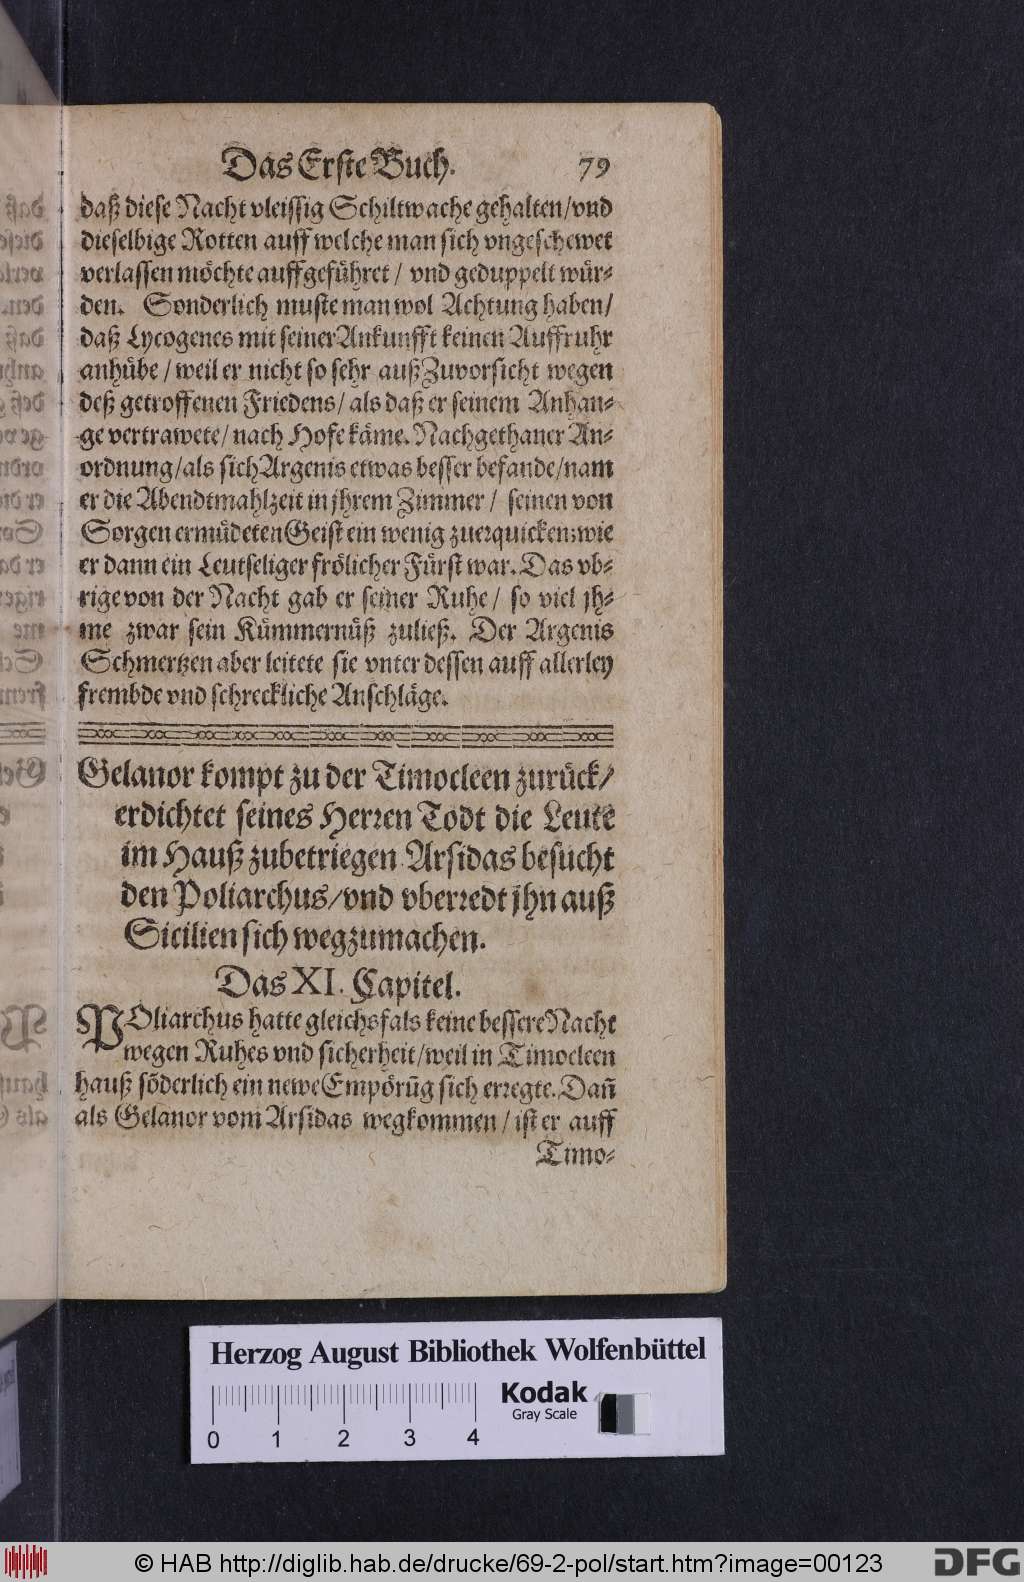 Das Erste Buch. 79
daß diese Nacht vleissig Schiltwache gehalten/vnd
dieselbige Rotten auff welche man sich vngeschewet
verlassen möchte auffgeführet / vnd geduppelt wür-
den. Sonderlich muste man wol Achtung haben/
daß Lycogenes mit seiner Ankunfft keinen Auffruhr
anhübe / weil er nicht so sehr auß Zuvorsicht wegen
deß getroffenen Friedens/ als daß er seinem Anhan-
ge vertrawete/ nach Hofe käme. Nach gethaner An-
ordnung/als sich Argenis etwas besser befande/nam
er die Abendtmahlzeit in jhrem Zimmer / seinen von
Sorgen ermüdeten Geist ein wenig zuerquicken; wie
er dann ein Leutseliger frölicher Fürst war. Das vb-
rige von der Nacht gab er seiner Ruhe/ so viel jh-
me zwar sein Kümmernüß zuließ. Der Argenis
Schmertzen aber leitete sie vnter dessen auff allerley
frembde vnd schreckliche Anschläge.
Gelanor kompt zu der Timocleen zurück/
erdichtet seines Herren Todt die Leute
im Hauß zubetriegen. Arsidas besucht
den Poliarchus/vnd vberredt jhn auß
Sicilien sich wegzumachen.
Das XI. Capitel.
POliarchus hatte gleichsfals keine bessere Nacht
wegen Ruhes vnd sicherheit/weil in Timocleen
hauß söderlich ein newe Empörūg sich erregte. Dañ
als Gelanor vom Arsidas wegkommen / ist er auff
Timo-
Herzog August Bibliothek Wolfenbüttel
Kodak
Gray Scale
0 1 2 3 4
© HAB http://diglib.hab.de/drucke/69-2-pol/start.htm?image=00123
DFG